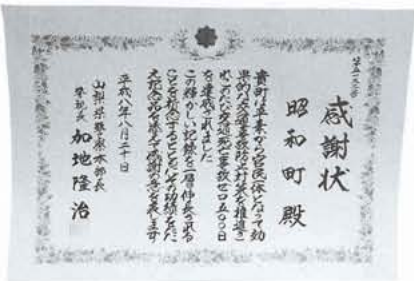 感謝状
昭和町 殿
貴町は平素から官民一体となって効
果的な交通事故防止対策を推進さ
れこのたび交通死亡事故ゼロ五〇〇日
を達成されました
この輝かしい記録を一層伸長される
ことを祈念するとともにその功績をたた
え記念品を添えて感謝の意を表します
平成八年八月二十日
山梨県警察本部長
警視長 加地隆治